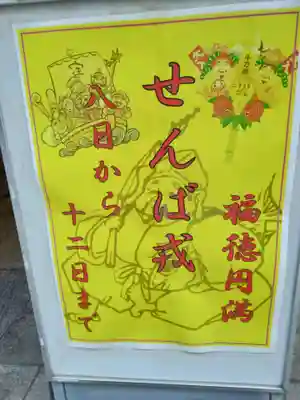 福徳円満
せんば戎
八日から
十二日まで
宝